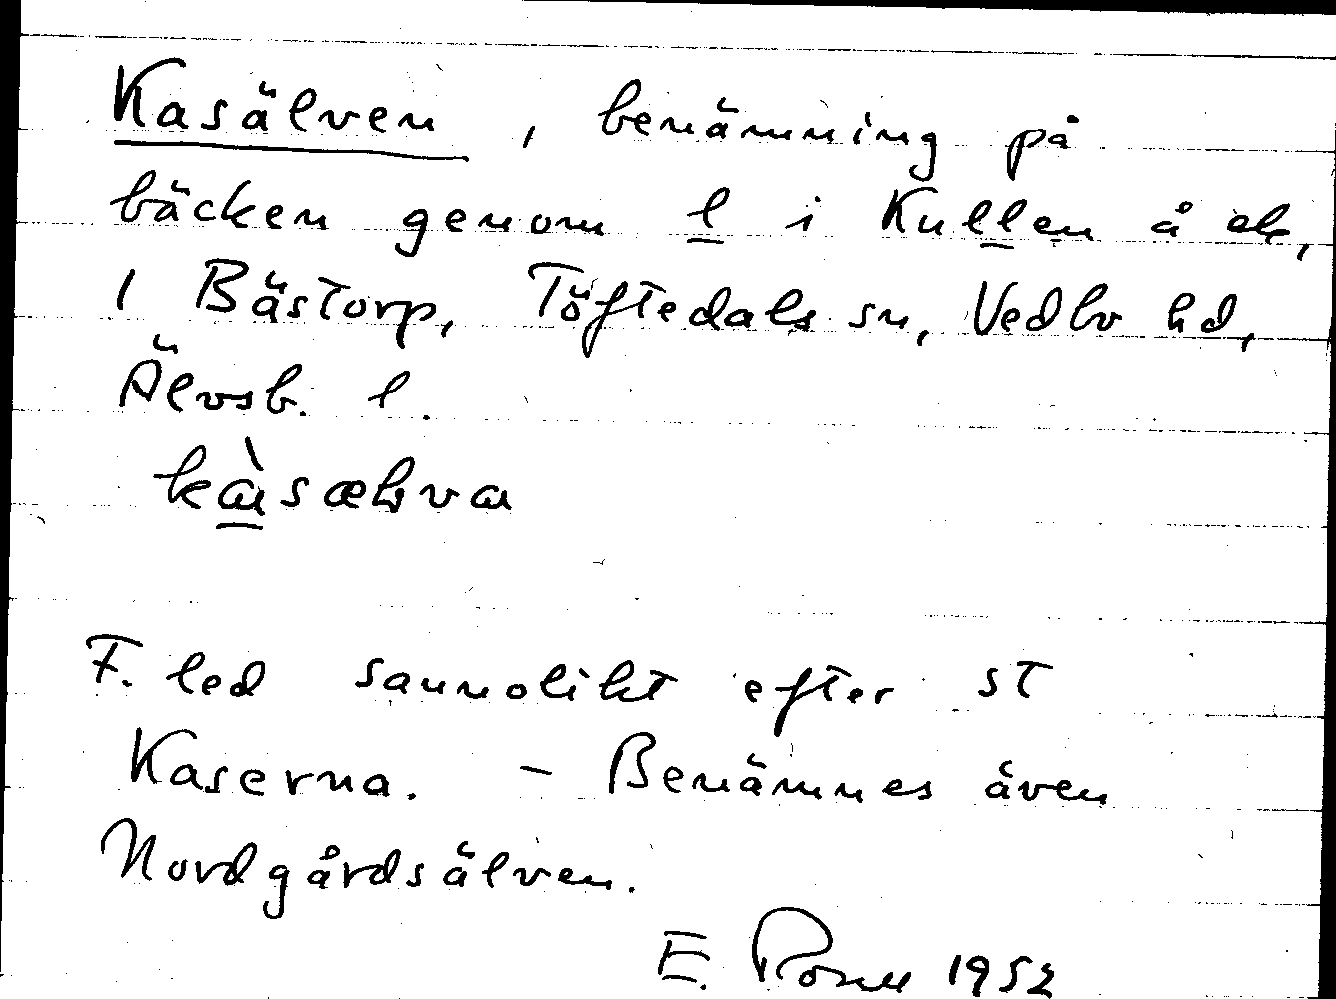 Kasälven, benämning på
bäcken genom l i Kullen å ek,
1 Bästorp, Töftedals sn, Vedbo hd,
Älvsb. l.
F. led sannolikt efter st
Kaserna. – Benämnes även
Nordgårdsälven.
E. 1952